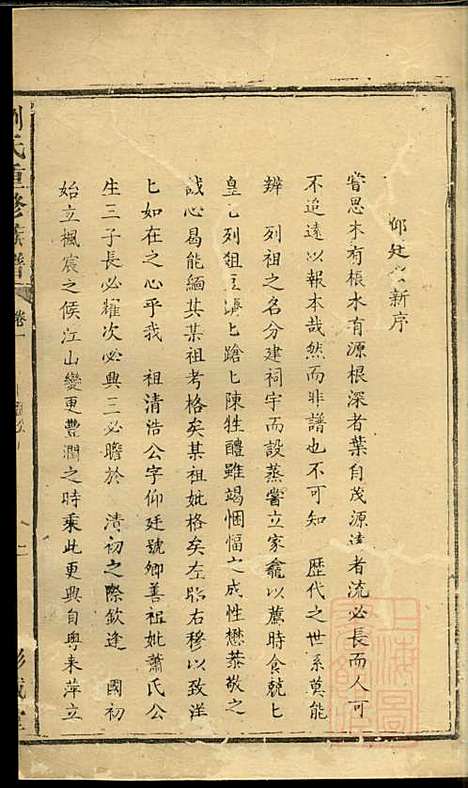 仰廷公新序
嘗思木有根水有源根深者葉自茂源遠者流必長而人可
不追遠以報本哉然而非譜也不可知 歷代之世系莫能
辨 列祖之名分建祠宇而設蒸嘗立家龕以薦時食兢匕
皇匕列俎豆濟匕蹌匕陳牲醴雖竭悃愊之成性懋恭敬之
誠心曷能緬其某祖考格矣某祖妣格矣左昭右穆以致洋
匕如在之心乎我 祖清浩公字仰廷號卿善祖妣蕭氏公
生三子長必耀次必興三必瞻於 清初之際欽逢 國初
始立楓宸之候江山變更豐潤之時乘此更興自粵來萍立
劉氏重修族譜
卷一
一
彭城堂
上海圖